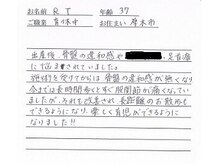 お名前 R T 年齢 37
ご職業 育休中 お住まい 厚木市
出産後、骨盤の違和感や 、足首痛
に悩まされていました。
施術を受けてからは骨盤の違和感が無くなり
今までは長時間歩くとすぐ股関節が痛くなってい
ましたが、それも改善され長距離のお散歩も
できるようになり、楽しく育児ができるように
なりました!!